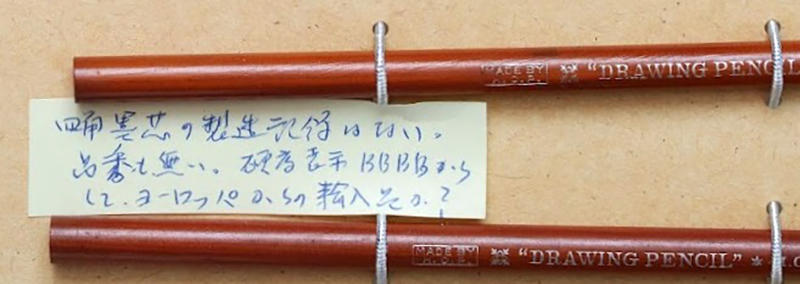 MADE BY
"DRAWING PENCIL
四角黒芯の製造記録はない。
品番も無い。硬度表示BBBBから
して、ヨーロッパからの輸入芯か?
MADE BY
H.C.P.
"DRAWING PENCIL"